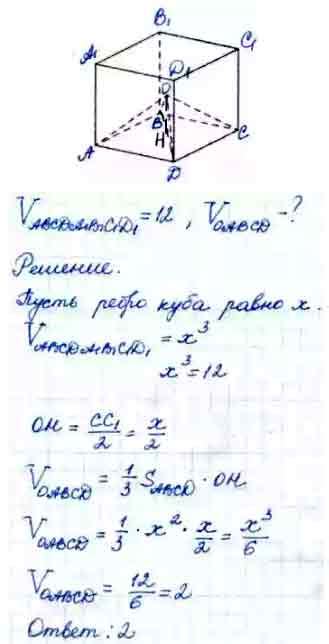 B₁
A₁
C₁
D₁
O
B
H
A
C
D
V_{ABCDA₁B₁C₁D₁} = 12, V_{OABCD} - ?
Решение.
Пусть ребро куба равно x.
V_{ABCDA₁B₁C₁D₁} = x³
x³ = 12
OH = CC₁/2 = x/2
V_{OABCD} = 1/3 S_{ABCD} · OH
V_{OABCD} = 1/3 · x² · x/2 = x³/6
V_{OABCD} = 12/6 = 2
Ответ: 2